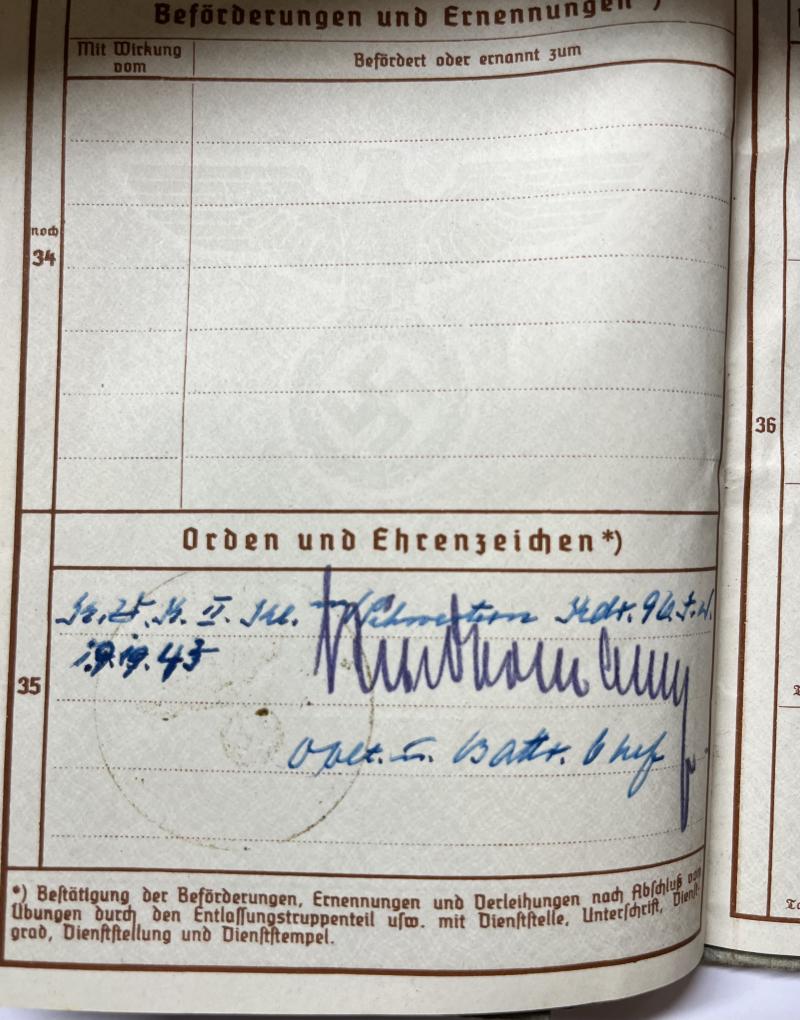 Beförderungen und Ernennungen *)
Mit Wirkung vom
Befördert oder ernannt zum
noch
34
Orden und Ehrenzeichen *)
Kr. V. K. II. Kl. m. Schwertern Kdr.
43
35
Oblt. u. Battr. Chef
*) Bestätigung der Beförderungen, Ernennungen und Verleihungen nach Abschluß von
Übungen durch den Entlassungstruppenteil usw. mit Dienststelle, Unterschrift, Dienst-
grad, Dienststellung und Dienststempel.
36